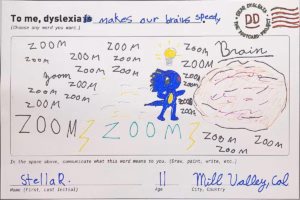 To me, dyslexia is makes our brains speedy.
(Choose any word you want.)
DEAR DYSLEXIA
DD
THE POSTCARD PROJECT
ZOOM ZOOM ZOOM
Brain
ZOOM ZOOM ZOOM
zoom ZOOM ZOOM
ZOOM ZOOM
ZOOM ZOOM ZOOM
ZOOM ZOOM
ZOOM ZOOM ZOOM
ZOOM ZOOM
In the space above, communicate what this word means to you. (Draw, paint, write, etc.)
Stella R. 11 Mill Valley, Cal
Name (First, Last Initial) Age City, Country